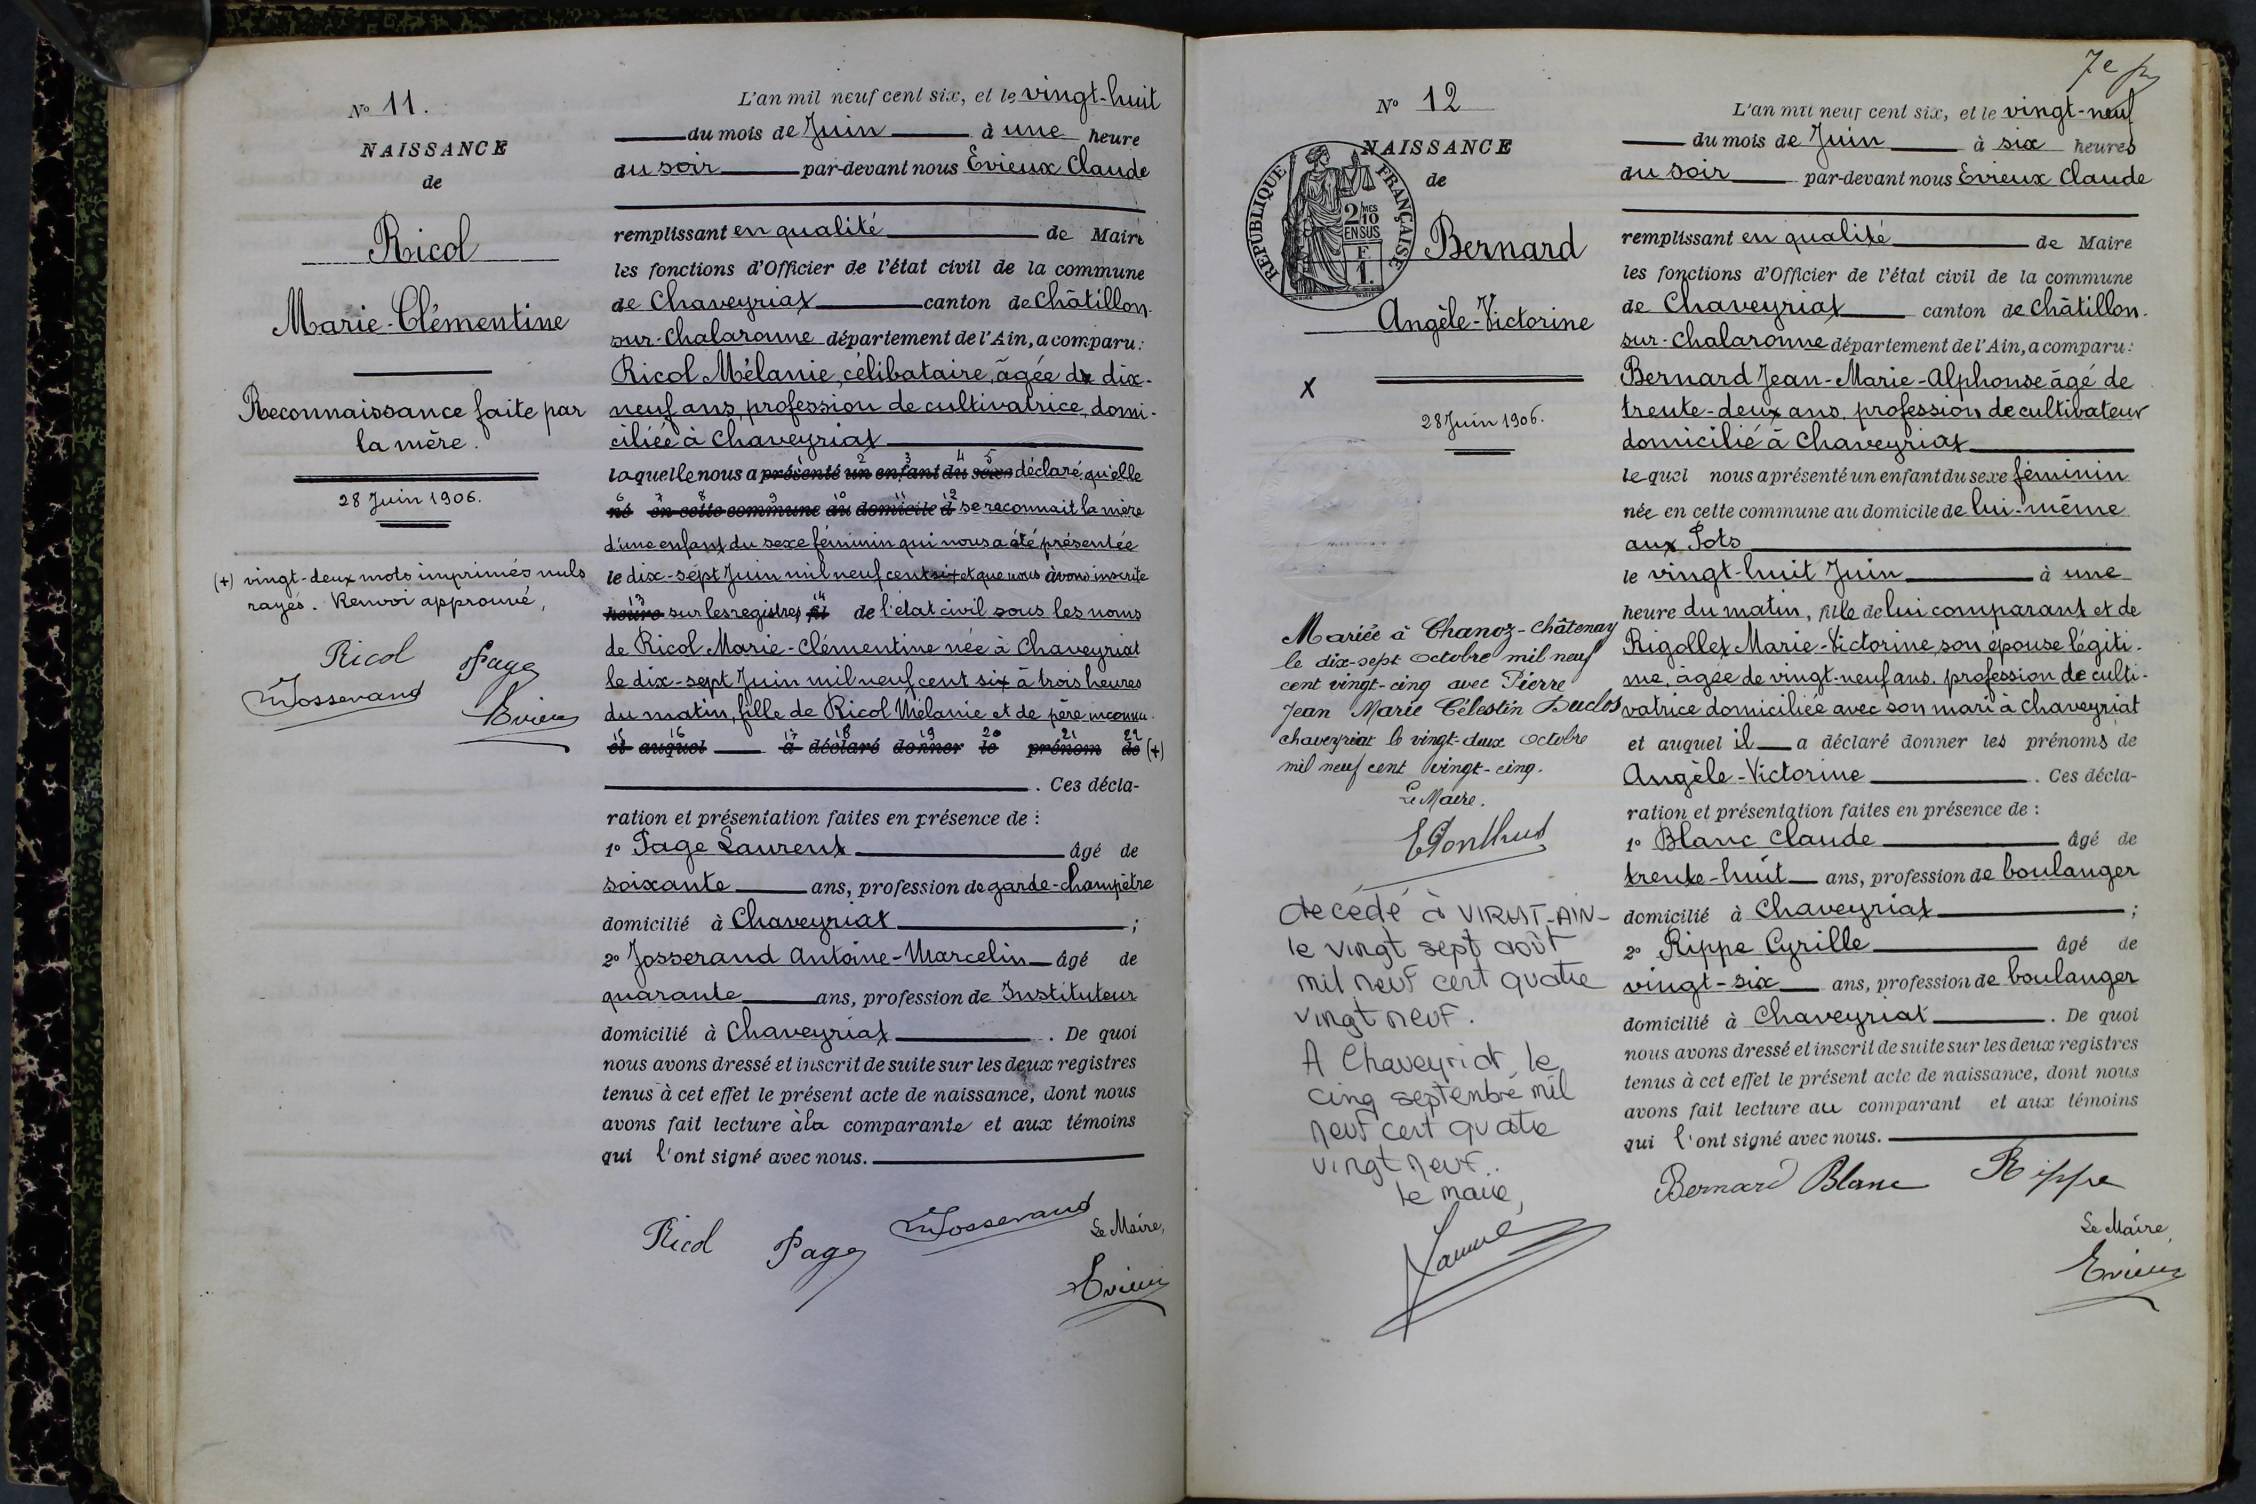 N° 11.
NAISSANCE
de
Ricol
Marie-Clémentine
Reconnaissance faite par
la mère.
28 Juin 1906.
(+) vingt-deux mots imprimés nuls
rayés. Renvoi approuvé,
Ricol Page
Josserand
Evieux
L'an mil neuf cent six, et le vingt-huit
du mois de Juin à une heure
du soir par-devant nous Evieux Claude
remplissant en qualité de Maire
les fonctions d'Officier de l'état civil de la commune
de Chaveyriat canton de Châtillon-
sur-Chalaronne département de l'Ain, a comparu:
Ricol Mélanie, célibataire, âgée de dix-
neuf ans, profession de cultivatrice, domi-
ciliée à Chaveyriat
laquelle nous a présenté un enfant du sexe déclaré qu'elle
né en cette commune au domicile d se reconnait la mère
d'une enfant du sexe féminin qui nous a été présentée
le dix-sept Juin mil neuf cent six et que nous avons inscrite
heure sur les registres fil de l'état civil sous les noms
de Ricol Marie-Clémentine née à Chaveyriat
le dix-sept Juin mil neuf cent six à trois heures
du matin, fille de Ricol Mélanie et de père inconnu.
et auquel a déclaré donner le prénom de (+)
. Ces décla-
ration et présentation faites en présence de :
1° Page Laurent âgé de
soixante ans, profession de garde-champêtre
domicilié à Chaveyriat ;
2° Josserand Antoine-Marcelin âgé de
quarante ans, profession de Instituteur
domicilié à Chaveyriat . De quoi
nous avons dressé et inscrit de suite sur les deux registres
tenus à cet effet le présent acte de naissance, dont nous
avons fait lecture à la comparante et aux témoins
qui l'ont signé avec nous.
Ricol Page Josserand Le Maire,
Evieux
N° 12
NAISSANCE
de
REPUBLIQUE FRANÇAISE
2/10 MES
EN SUS
F
1.
Bernard
Angèle-Victorine
X
28 Juin 1906.
Mariée à Chanoz-Châtenay
le dix-sept octobre mil neuf
cent vingt-cinq avec Pierre
Jean Marie Célestin Duclos
chaveyriat le vingt-deux octobre
mil neuf cent vingt-cinq.
Le Maire.
décédé à VIRIAT-AIN-
le vingt sept août
mil neuf cent quatre
vingt neuf.
A Chaveyriat, le
cinq septembre mil
neuf cent quatre
vingt neuf..
le maire,
7e
L'an mil neuf cent six, et le vingt-neuf
du mois de Juin à six heures
du soir par-devant nous Evieux Claude
remplissant en qualité de Maire
les fonctions d'Officier de l'état civil de la commune
de Chaveyriat canton de Châtillon-
sur-Chalaronne département de l'Ain, a comparu:
Bernard Jean-Marie-Alphonse âgé de
trente-deux ans, profession de cultivateur
domicilié à Chaveyriat
lequel nous a présenté un enfant du sexe féminin
née en cette commune au domicile de lui-même
aux Pots
le vingt-huit Juin à une
heure du matin, fille de lui comparant et de
Rigollet Marie-Victorine, son épouse légiti-
me, âgée de vingt-neuf ans, profession de culti-
vatrice domiciliée avec son mari à Chaveyriat
et auquel il a déclaré donner les prénoms de
Angèle-Victorine . Ces décla-
ration et présentation faites en présence de :
1° Blanc Claude âgé de
trente-huit ans, profession de boulanger
domicilié à Chaveyriat ;
2° Rippe Cyrille âgé de
vingt-six ans, profession de boulanger
domicilié à Chaveyriat . De quoi
nous avons dressé et inscrit de suite sur les deux registres
tenus à cet effet le présent acte de naissance, dont nous
avons fait lecture au comparant et aux témoins
qui l'ont signé avec nous.
Bernard Blanc Rippe
Le Maire,
Evieux